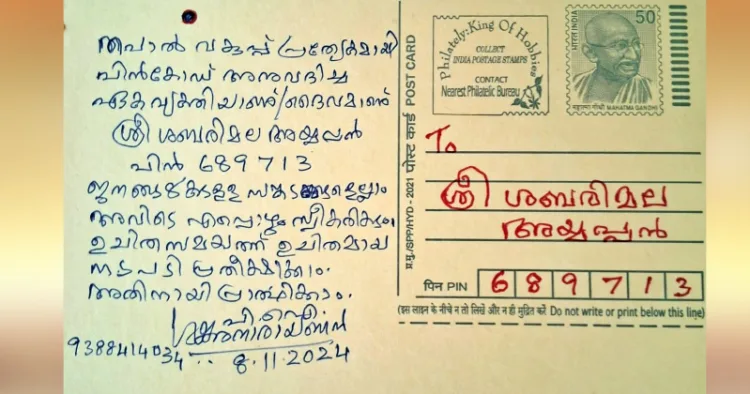 തപാൽ വകുപ്പ് പ്രത്യേകമായി
പിൻകോഡ് അനുവദിച്ച
ഏക വ്യക്തിയാണ്/ദൈവമാണ്
ശ്രീ ശബരിമല അയ്യപ്പൻ
പിൻ 689713
ജനങ്ങൾക്കുള്ള സങ്കടങ്ങളെല്ലാം
അവിടെ എപ്പോഴും സ്വീകരിക്കും.
ഉചിതസമയത്ത് ഉചിതമായ
നടപടി പ്രതീക്ഷിക്കാം.
അതിനായി പ്രാർത്ഥിക്കാം.
പി.ഐ.
ശങ്കരനാരായണൻ
9388414034
8.11.2024
Philately:King Of Hobbies
COLLECT
INDIA POSTAGE STAMPS
CONTACT
Nearest Philatelic Bureau
भारत INDIA
50
महात्मा गाँधी MAHATMA GANDHI
प्र.मु./SPP/HYD - 2021 पोस्ट कार्ड POST CARD
To
ശ്രീ ശബരിമല
അയ്യപ്പൻ
पिन PIN 689713
(इस लाइन के नीचे न तो लिखें और न ही मुद्रित करें Do not write or print below this line)